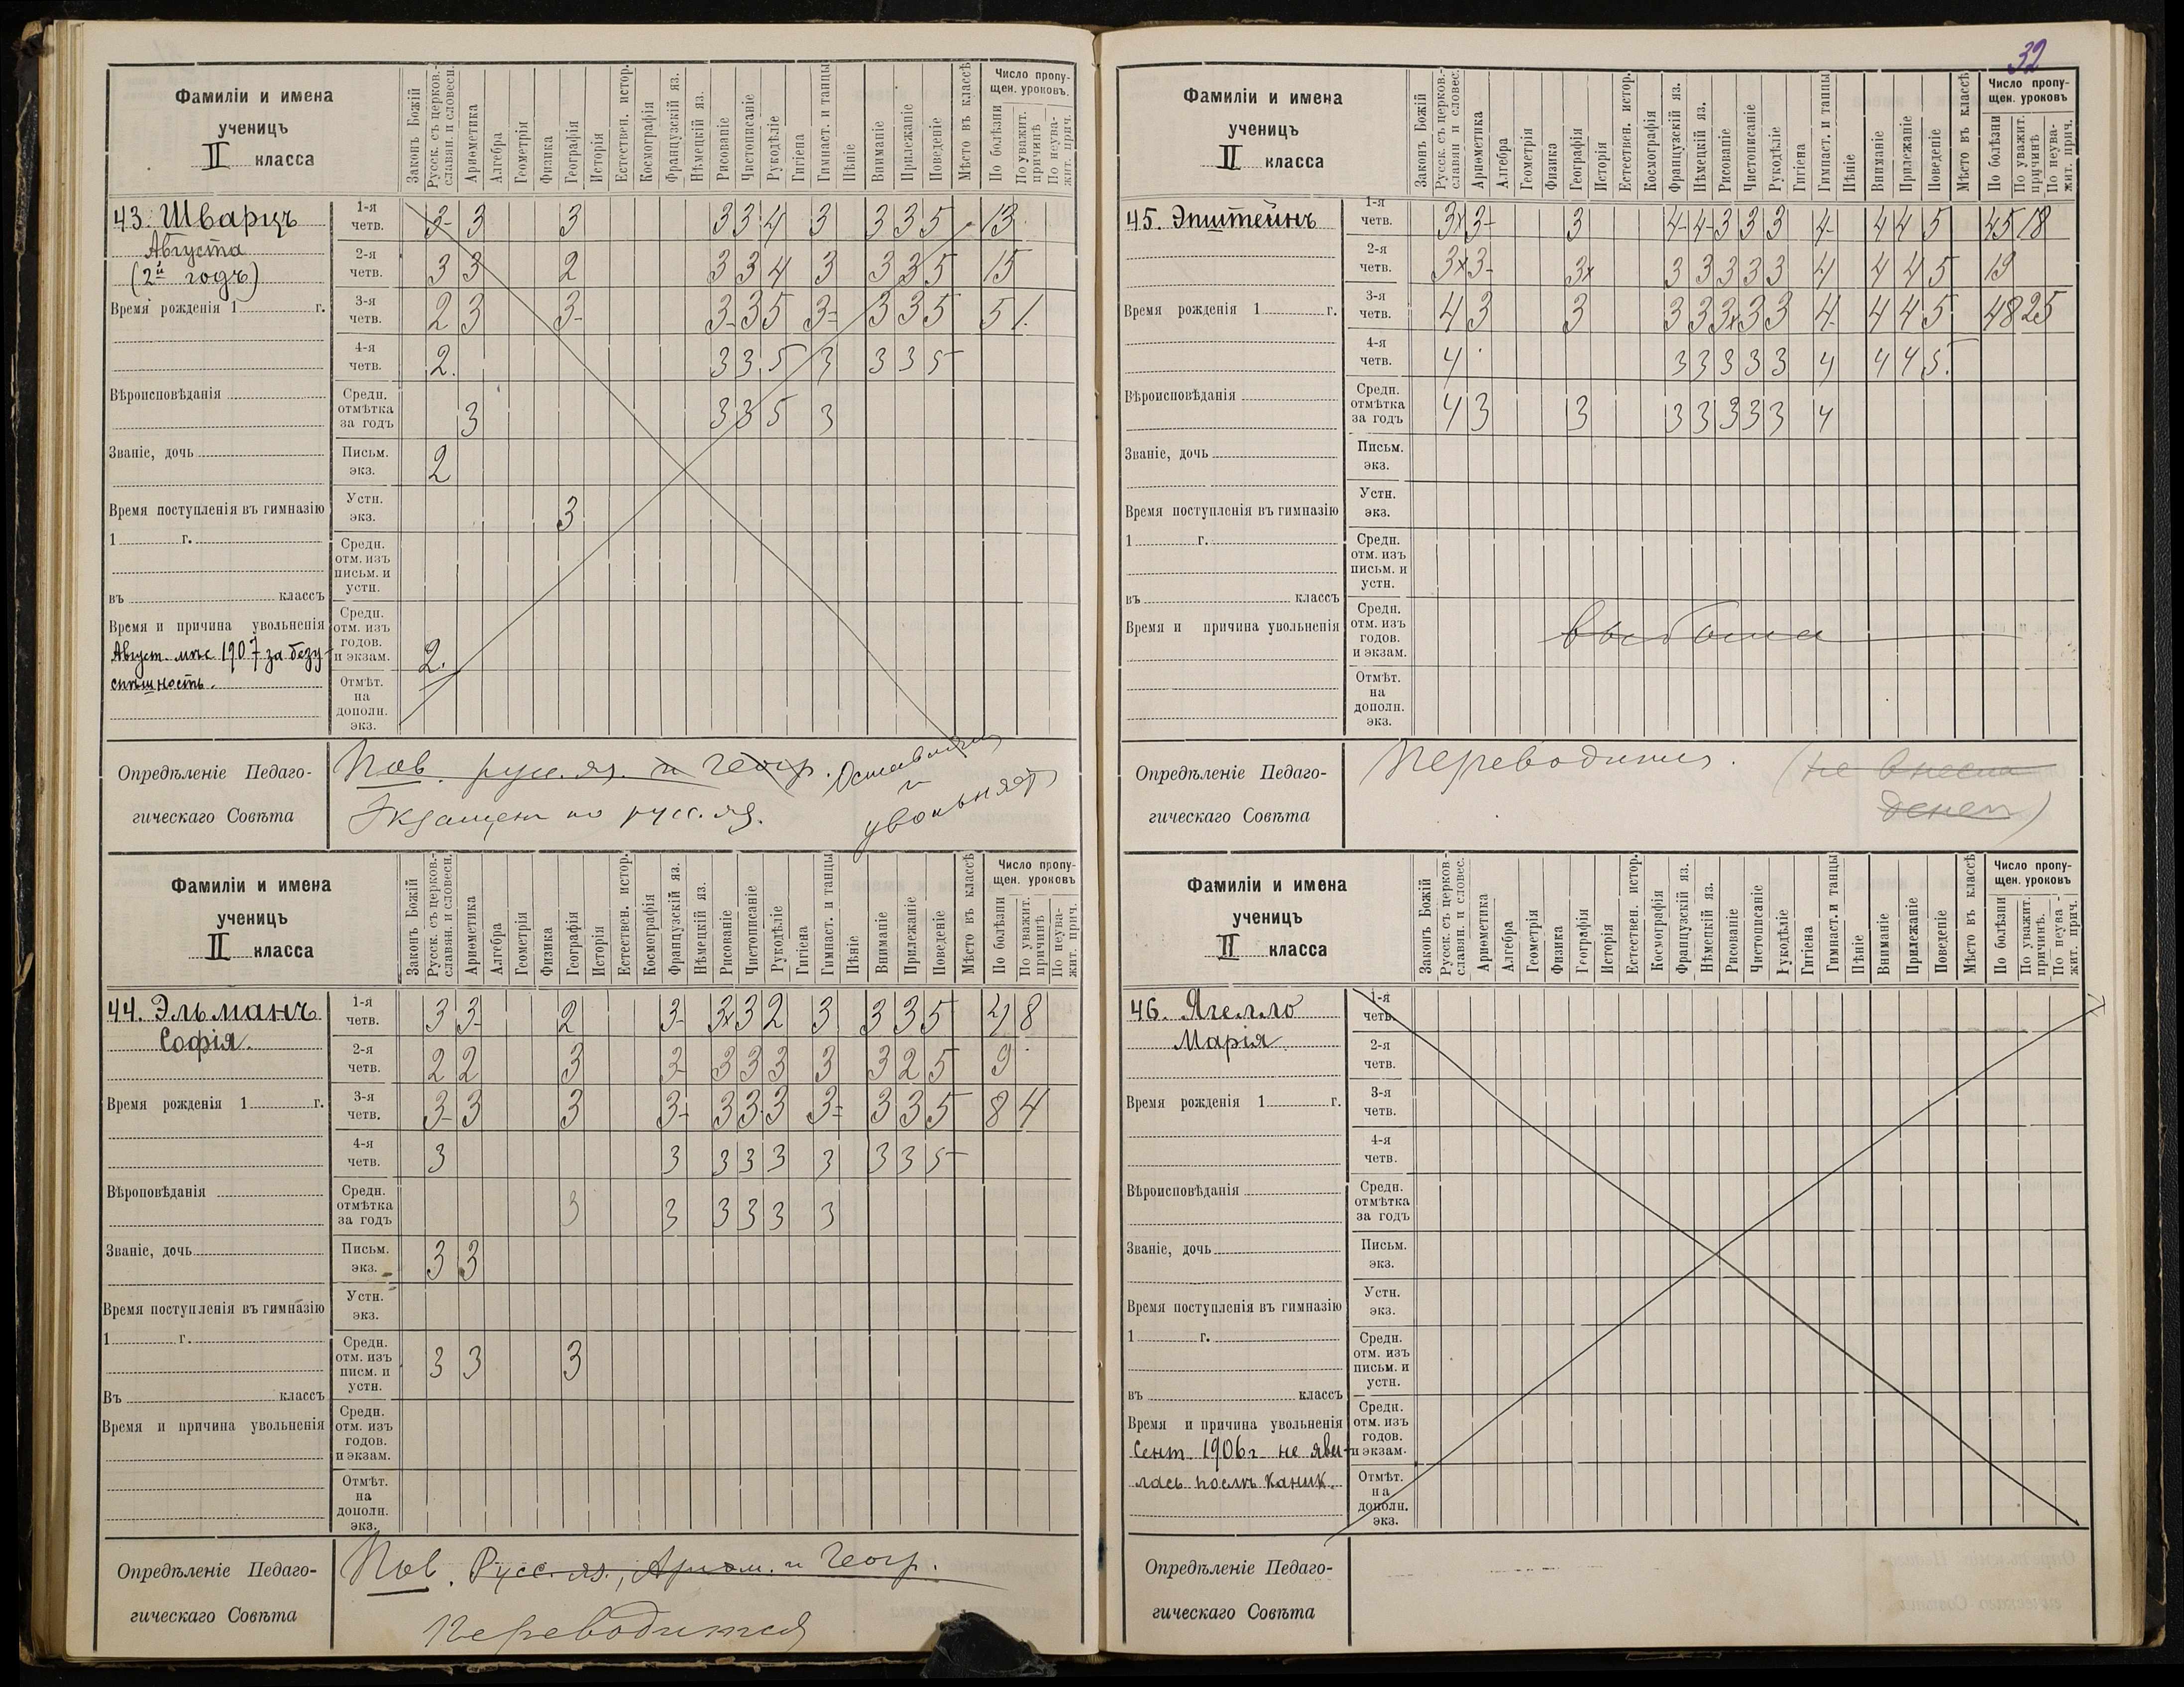 32
Фамиліи и имена
ученицъ
II класса
Законъ Божій
Русск. съ церков.-
славян. и словесн.
Ариѳметика
Алгебра
Геометрія
Физика
Географія
Исторія
Естествен. истор.
Космографія
Французскій яз.
Нѣмецкій яз.
Рисованіе
Чистописаніе
Рукодѣліе
Гигіена
Гимнаст. и танцы
Пѣніе
Вниманіе
Прилежаніе
Поведеніе
Мѣсто въ классѣ
Число пропу-
щен. уроковъ.
По болѣзни
По уважит.
причинѣ
По неува-
жит. прич.
43. Шварцъ
Августа
(2й годъ)
Время рожденія 1 г.
Вѣроисповѣданія
Званіе, дочь
Время поступленія въ гимназію
1 г.
въ классъ
Время и причина увольненія
Август. мѣс 1907 за безу-
спѣшность.
1-я четв. 3- 3 3 3 3 4 3 3 3 5 13
2-я четв. 3 3 2 3 3 4 3 3 3 5 15
3-я четв. 2 3 3- 3- 3 5 3- 3 3 5 5 1.
4-я четв. 2. 3 3 5 3 3 3 5
Средн. отмѣтка за годъ 3 3 3 5 3
Письм. экз. 2
Устн. экз. 3
Средн. отм. изъ письм. и устн.
Средн. отм. изъ годов. и экзам. 2.
Отмѣт. на дополн. экз.
Опредѣленіе Педаго-
гическаго Совѣта
Пов. русс. яз. и геогр.
Экзамен по русс. яз.
и увольняет
Фамиліи и имена
ученицъ
II класса
Законъ Божій
Русск. съ церков.-
славян. и словесн.
Ариѳметика
Алгебра
Геометрія
Физика
Географія
Исторія
Естествен. истор.
Космографія
Французскій яз.
Нѣмецкій яз.
Рисованіе
Чистописаніе
Рукодѣліе
Гигіена
Гимнаст. и танцы
Пѣніе
Вниманіе
Прилежаніе
Поведеніе
Мѣсто въ классѣ
Число пропу-
щен. уроковъ
По болѣзни
По уважит.
причинѣ
По неува-
жит. прич.
44. Эльманъ
Софія.
Время рожденія 1 г.
Вѣроповѣданія
Званіе, дочь
Время поступленія въ гимназію
1 г.
Въ классъ
Время и причина увольненія
1-я четв. 3 3- 2 3- 3x 3 2 3 3 3 5 8
2-я четв. 2 2 3 3- 3 3 3 3 3 2 5 9
3-я четв. 3- 3 3 3- 3 3 3 3- 3 3 5 8 4
4-я четв. 3 3 3 3 3 3 3 3 5
Средн. отмѣтка за годъ 3 3 3 3 3 3
Письм. экз. 3 3
Устн. экз.
Средн. отм. изъ писм. и устн. 3 3 3
Средн. отм. изъ годов. и экзам.
Отмѣт. на дополн. экз.
Опредѣленіе Педаго-
гическаго Совѣта
Пов. Русс. яз., Ариѳм. и Геогр.
Переводится
Фамиліи и имена
ученицъ
II класса
Законъ Божій
Русск. съ церков.-
славян и словес.
Ариѳметика
Алгебра
Геометрія
Физика
Географія
Исторія
Естествен. истор.
Космографія
Французскій яз.
Нѣмецкій яз.
Рисованіе
Чистописаніе
Рукодѣліе
Гигіена
Гимнаст. и танцы
Пѣніе
Вниманіе
Прилежаніе
Поведеніе
Мѣсто въ классѣ
Число пропу-
щен. уроковъ
По болѣзни
По уважит.
причинѣ
По неува-
жит. прич.
45. Эпштейнъ
Время рожденія 1 г.
Вѣроисповѣданія
Званіе, дочь
Время поступленія въ гимназію
1 г.
въ классъ
Время и причина увольненія
1-я четв. 3x 3- 3 4- 4- 3 3 3 4- 4 4 5 45 18
2-я четв. 3x 3- 3x 3 3 3 3 3 4 4 4 5 19
3-я четв. 4 3 3 3 3 3x 3 3 4- 4 4 5 48 25
4-я четв. 4 3 3 3 3 3 4 4 4 5.
Средн. отмѣтка за годъ 4 3 3 3 3 3 3 3 4
Письм. экз.
Устн. экз.
Средн. отм. изъ письм. и устн.
Средн. отм. изъ годов. и экзам. выбыла
Отмѣт. на дополн. экз.
Опредѣленіе Педаго-
гическаго Совѣта
Переводится. (не внесла
денег)
Фамиліи и имена
ученицъ
II класса
Законъ Божій
Русск. съ церков-
славян. и словес.
Ариѳметика
Алгебра
Геометрія
Физика
Географія
Исторія
Естествен. истор.
Космографія
Французскій яз.
Нѣмецкій яз.
Рисованіе
Чистописаніе
Рукодѣліе
Гигіена
Гимнаст. и танцы
Пѣніе
Вниманіе
Прилежаніе
Поведеніе
Мѣсто въ классѣ
Число пропу-
щен. уроковъ
По болѣзни
По уважит.
причинѣ.
По неува-
жит. прич.
46. Ягелло
Марія
Время рожденія 1 г.
Вѣроисповѣданія
Званіе, дочь
Время поступленія въ гимназію
1 г.
въ классъ
Время и причина увольненія
Сент. 1906 г не яви-
лась послѣ каник.
1-я четв.
2-я четв.
3-я четв.
4-я четв.
Средн. отмѣтка за годъ
Письм. экз.
Устн. экз.
Средн. отм. изъ письм. и устн.
Средн. отм. изъ годов. и экзам.
Отмѣт. на дополн. экз.
Опредѣленіе Педаго-
гическаго Совѣта